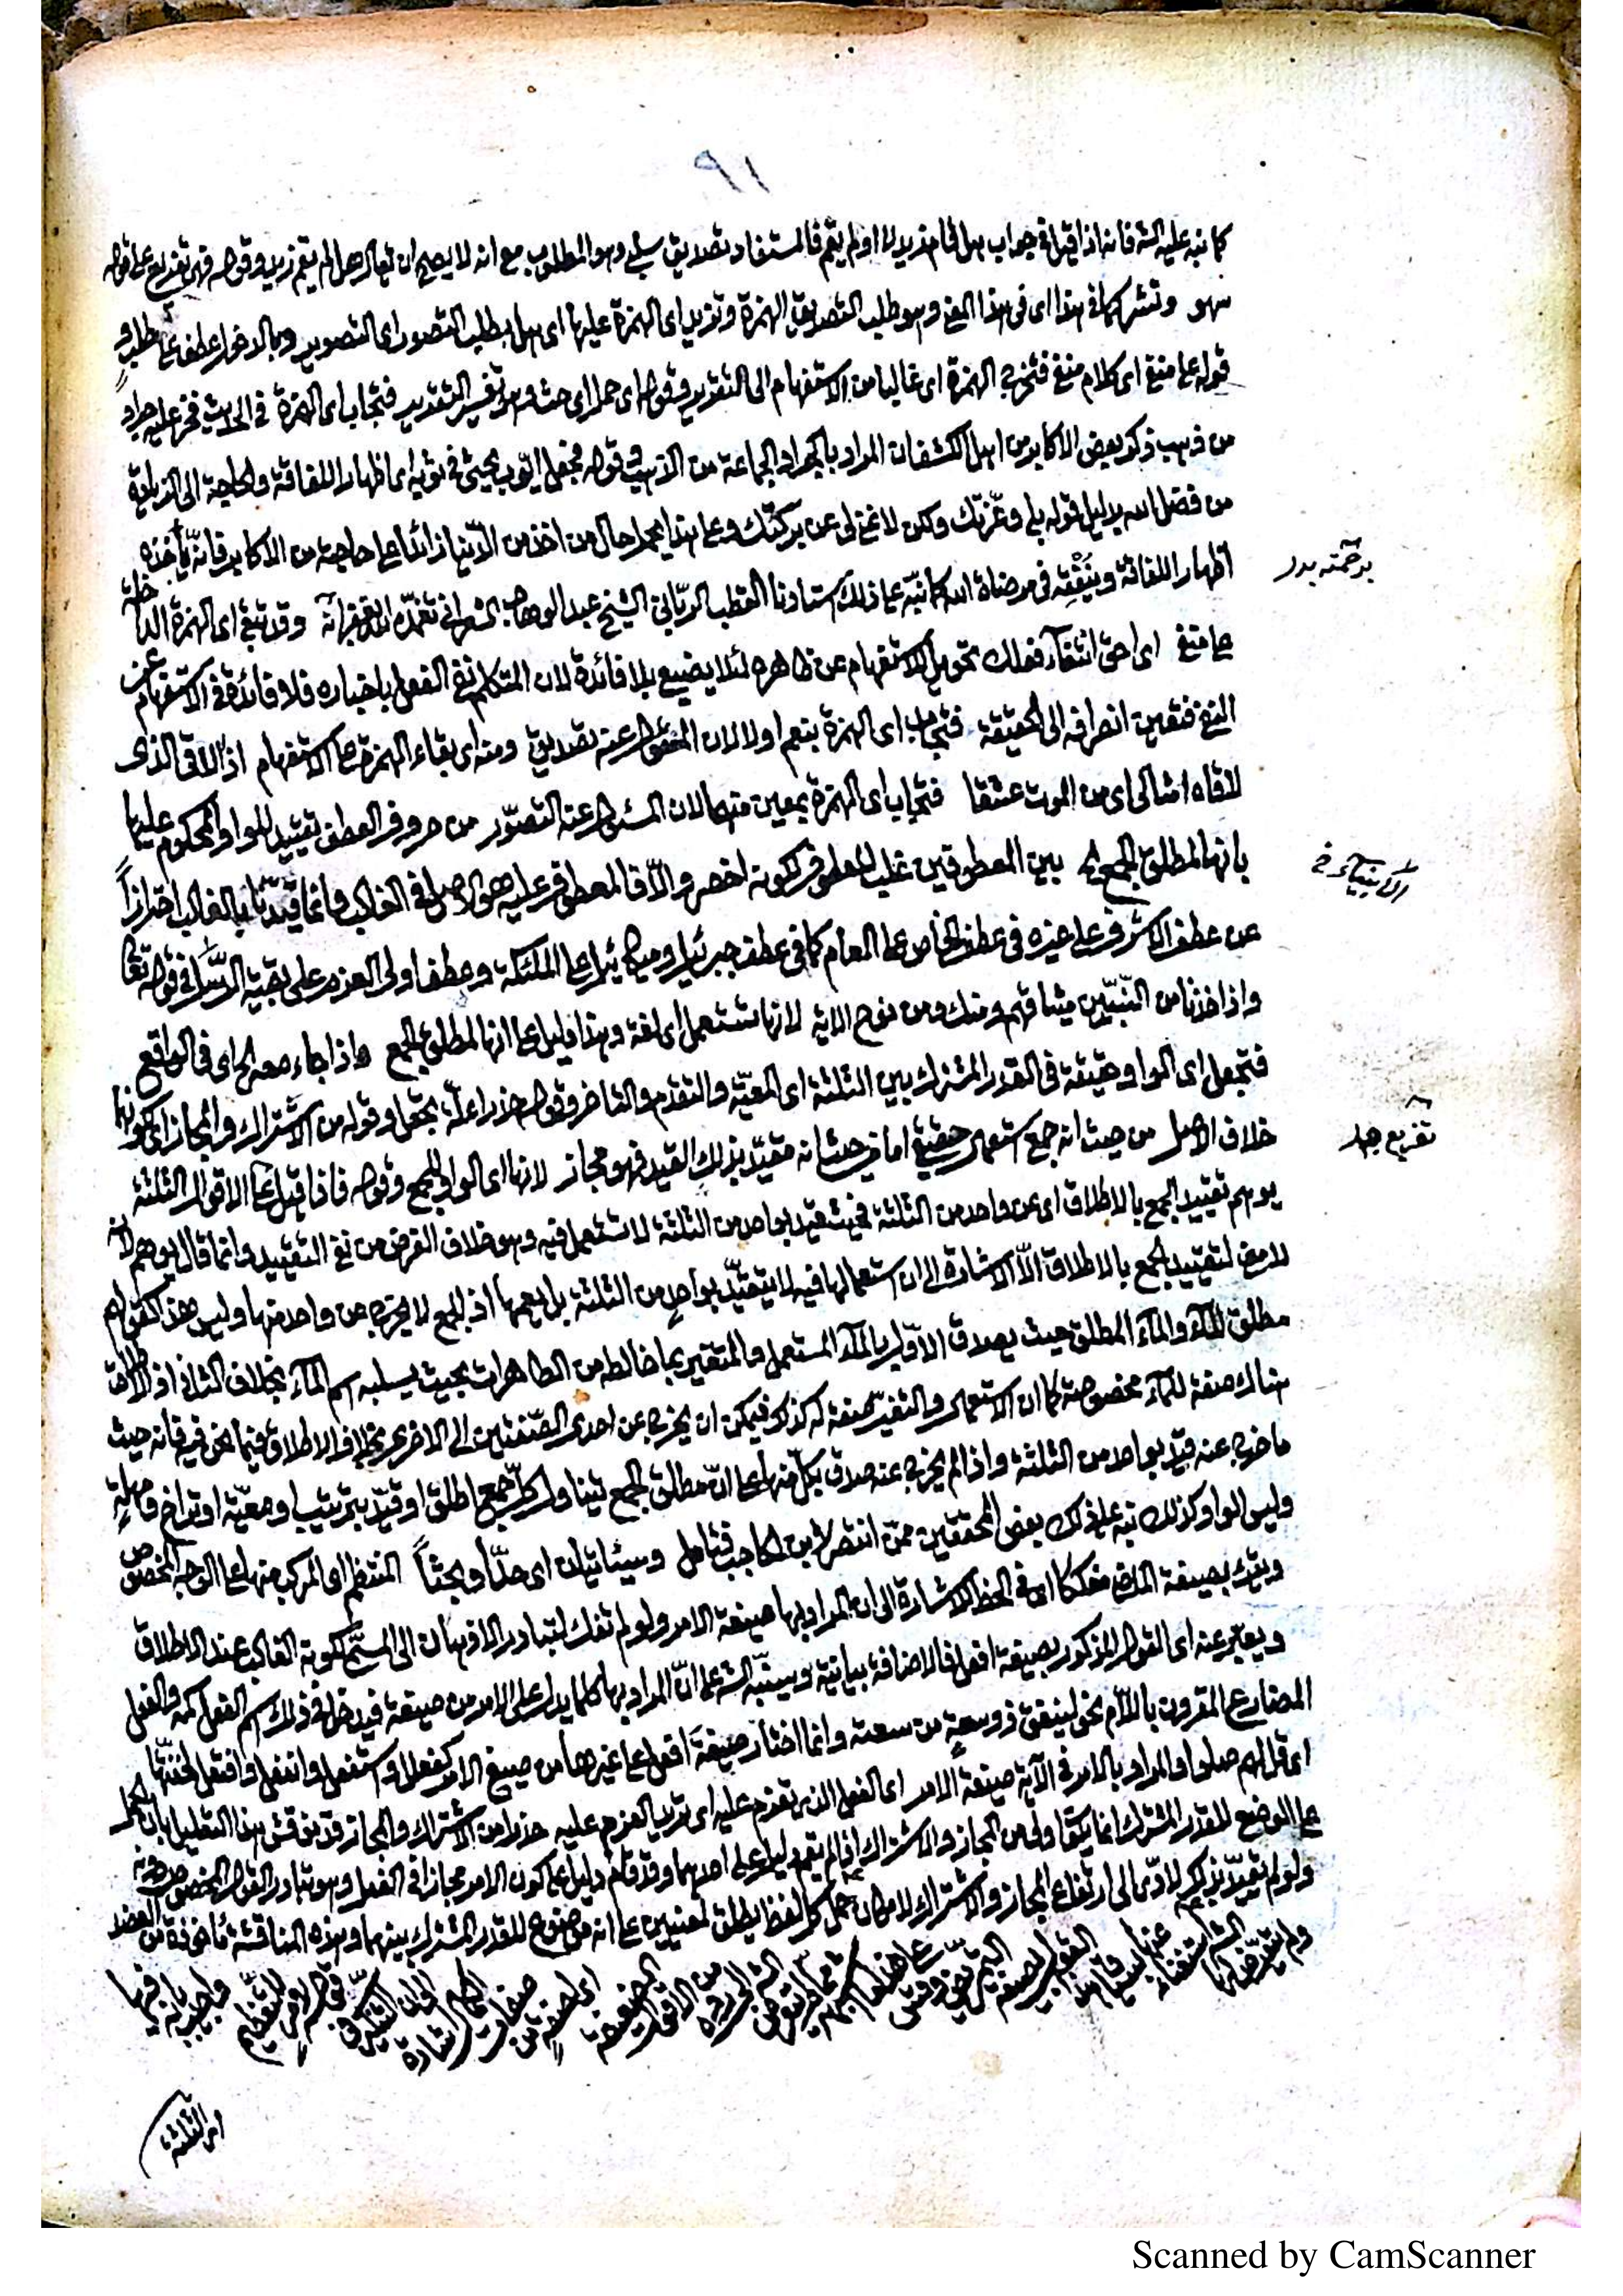 ١٩
كما نبه عليه الش فانه اذا قيل في جواب هل قام زيد لا او لم يقم فالمستفاد تصديق سلبي وهو المطلوب مع انه لا يصح ان يقال هل لم يقم زيد وقوله فهم تفريع على قوله
سهو وتشركها في هذا اى في هذا المعنى وهو طلب التصديق الهمزة وتزيد اى الهمزة عليها اى هل بطلب التصور اى التصوير وبالدخول عطف على طلب و
قوله على منفي اى كلام منفي فتخرج الهمزة اى غالبا من الاستفهام الى التقرير وقوله اى حمل اى حث وهو تفسير التقرير فتجاب اى الهمزة في الحديث فخر عليه جراد
من ذهب ذكر بعض الاكابر من اهل الكشف ان المراد بالجراد الجماعة من الذهب وقوله فجعل ايوب يحثى في ثوبه اى اظهار اللفاقة والحاجة الى الزيادة
من فضل الله بدليل قوله بلى وعزتك ولكن لا غنى لى عن بركتك وعلى هذا يحمل حال من اخذ من الدنيا زائدا على حاجته من الاكابر فانه يأخذه
اظهار اللفاقة وينفقه في مرضاة الله كما نبه على ذلك استاذنا القطب الرباني الشيخ عبد الوهاب الشعراني تغمده الله بغفرانه وقد تبقى اى الهمزة الداخلة
على منفي اى احق انتفاء فعلك تحويل الاستفهام عن ظاهره لئلا يضيع بلا فائدة لان المتكلم نفى الفعل باخباره فلا فائدة في الاستفهام عن
النفي فتعين انصرافه الى الحقيقة فتجاب اى الهمزة بنعم او لا لان المسئول عنه تصديق ومنه اى بقاء الهمزة على الاستفهام اذا الاقى الذى
لاقاه امثالى اى من الموت عشقا فتجاب اى الهمزة بمعين منهما لان المسئول عنه التصور من حروف العطف تقييد للواو المحكوم عليها
بانها لمطلق الجمع بين المعطوفين غلب المعطوف لكونه اخصر والا فالمعطوف عليه هو الاصل في الغالب وانما قيدنا بالغالب احترازا
عن عطف الاشرف على غيره في عطف الخاص على العام كما في عطف جبرئيل وميكائيل على الملئكة وعطف اولى العزم على بقية الرسل في قوله تعا
واذ اخذنا من النبيين ميثاقهم ومنك ومن نوح الاية لانها تستعمل اى لغة وهذا دليل على انها لمطلق الجمع اذا جاء معه الى اى في الواقع
فتجعل اى الواو حقيقة في القدر المشترك بين الثلثة اى المعية والتقدم والتاخر وقوله حذرا علة بجعل وقوله من الاشتراك والمجاز اى لكونهما
خلاف الاصل من حيث انه جمع استعمال حقيقي اما من حيث انه مقيد بذلك القيد فهو مجاز لانها اى الواو للجمع وقوله فاذا قيل على الاقوال الثلثة
يوهم تقييد الجمع بالاطلاق اى عن واحد من الثلثة فحيث قيد بواحد من الثلثة لا تستعمل فيه وهو خلاف الغرض من نفي التقييد وانما قال يوهم لانه
لا معنى لتقييد الجمع بالاطلاق الا الاشارة الى ان استعمالها فيه لا يتقيد بواحد من الثلثة بل يعمها اذ الجمع لا يخرج عن واحد منها وليس هذا كقولهم
مطلق الماء والماء المطلق حيث يصدق الاول بالماء المستعمل والمتغير بما خالطه من الطاهرات بحيث يسلبه اسم الماء بخلاف الثاني اذ الاطلاق
هناك صفة للماء مخصوصة كما ان الاستعمال والتغير صفة له كذلك فيمكن ان يخرج عن احدى الصفتين الى الاخرى بخلاف الاطلاق فيما نحن فيه فانه حيث
ما خرج عنه قيد بواحد من الثلثة واذا لم يخرج عنه صدق بكل منها على ان مطلق الجمع يتناول كل جمع اطلق او قيد بترتيب او معية او تراخ ومهلة
وليس الواو كذلك نبه على ذلك بعض المحققين ممن انتصر لابن الحاجب فتامل وسيئاتيان اى حدا وبحثا المنتظم اى المركب منها على الوجه المخصوص
ويقرء بصيغة الماضي مفككا اى في الخط الاشارة الى ان المراد بها صيغة الامر ولو لم تفك لتبادر الاذهان الى المسمى لكونه الغالب عند الاطلاق
ويعبر عنه اى القول المذكور بصيغة افعل فالاضافة بيانية وسينبه الش على ان المراد بها كلما يدل على الامر من صيغة فيدخل في ذلك اسم الفعل كمه والفعل
المضارع المقرون باللام نحو لينفق ذو سعة من سعته وانما اختار صيغة افعل على غيرها من صيغ الامر كفعلل واستفعل وانفعل وافتعل لخفتها
اى قل لهم صلوا والمراد بالامر في الآية صيغة الامر اى الفعل الذى تعزم عليه اى تريد العزم عليه حذرا من الاشتراك والمجاز قد نوقش هذا التعليل بان الحمل
على الوضع للقدر المشترك انما يكون اولى من المجاز والاشتراك اذا لم يقم دليل على احدهما وقد قام دليل على كون الامر مجازا في الفعل وهو تبادر القول المخصوص دونه
ولو لم يقيد بذلك لادى الى ارتفاع المجاز والاشتراك لامكان حمل كل لفظ يطلق لمعنيين على انه موضوع للقدر المشترك بينهما وهذه المناقشة مأخوذة من العضد
برحمته بدر
الانبياء خ
تفريع جيد